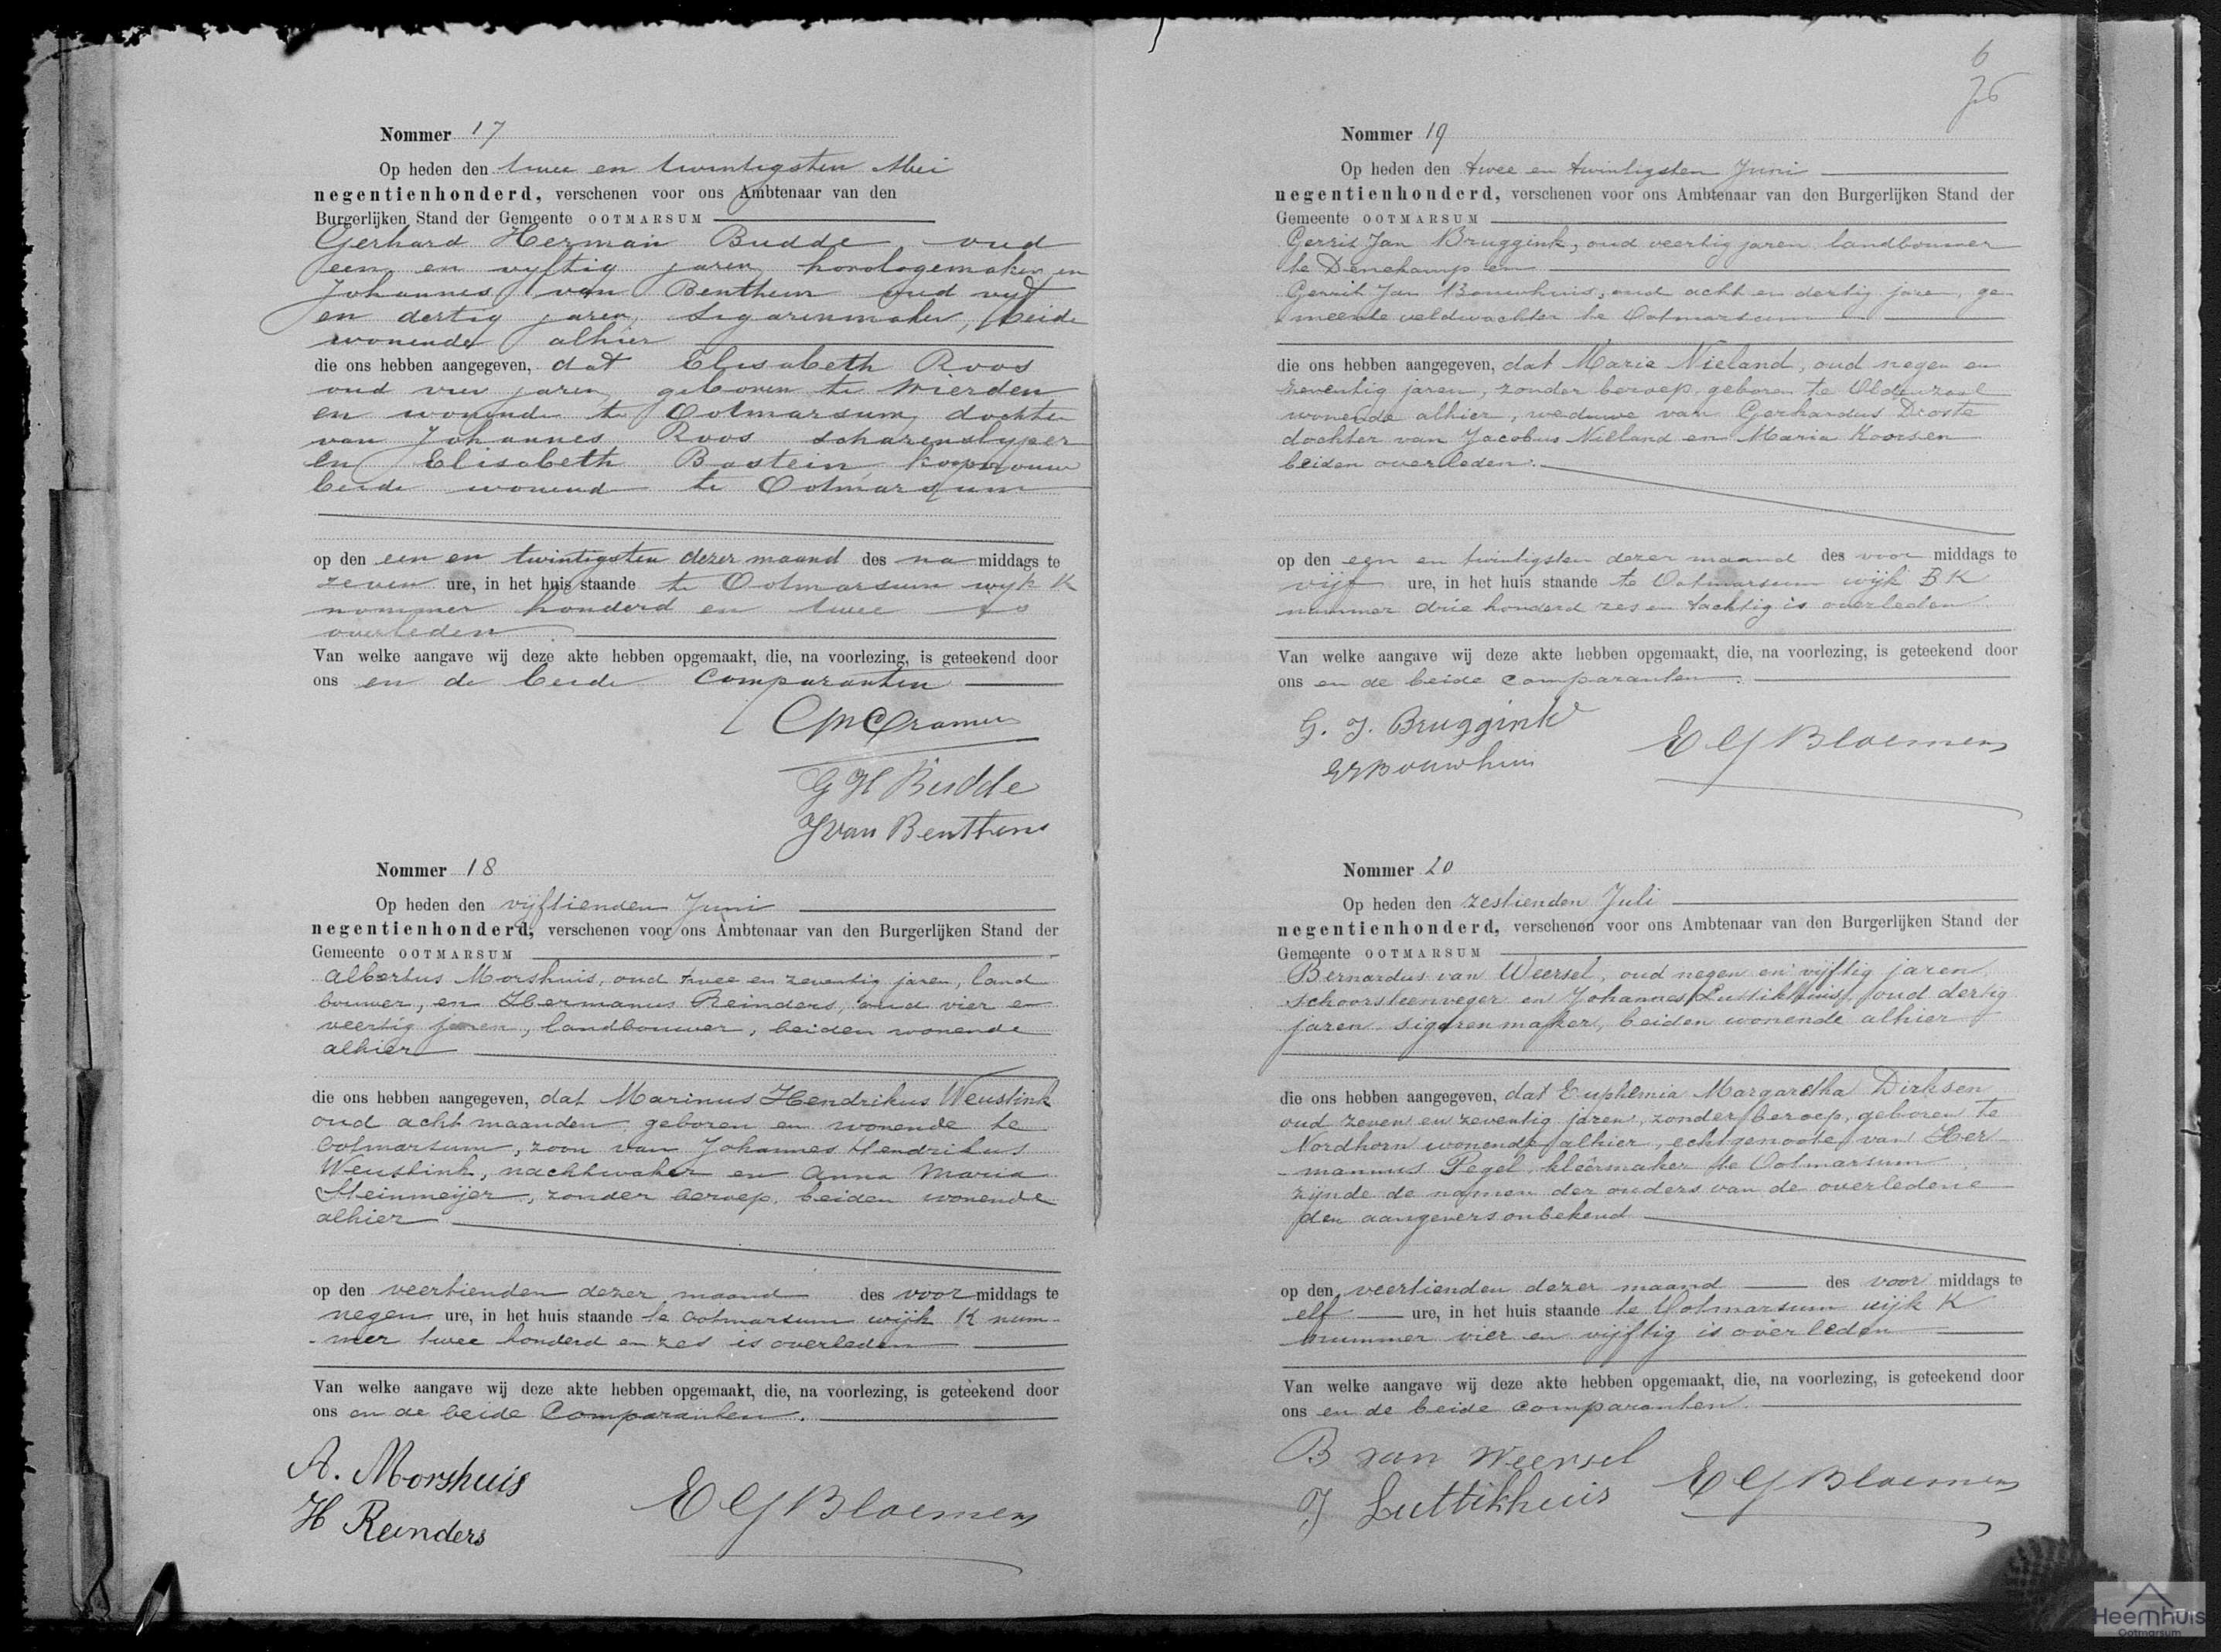 Nommer 17
Op heden den twee en twintigsten Mei
negentienhonderd, verschenen voor ons Ambtenaar van den
Burgerlijken Stand der Gemeente OOTMARSUM
Gerhard Herman Budde oud
een en vyftig jaren horologemaker en
Johannes van Benthem oud vyf
en dertig jaren, Sigarenmaker, beide
wonende alhier
die ons hebben aangegeven, dat Elisabeth Roos
oud vier jaren, geboren te Wierden
en wonende te Ootmarsum, dochter
van Johannes Roos scharenslyper
en Elisabeth Bastein koopvrouw
beide wonende te Ootmarsum
op den een en twintigsten dezer maand des na middags te
zeven ure, in het huis staande te Ootmarsum wyk K
nommer honderd en twee is
overleden
Van welke aangave wij deze akte hebben opgemaakt, die, na voorlezing, is geteekend door
ons en de beide Comparanten
Cramer
G H Budde
J van Benthem
Nommer 18
Op heden den vijftienden Juni
negentienhonderd, verschenen voor ons Ambtenaar van den Burgerlijken Stand der
Gemeente OOTMARSUM
Albertus Morshuis, oud twee en zeventig jaren, land
bouwer, en Hermanus Reinders, oud vier en
veertig jaren, landbouwer, beiden wonende
alhier
die ons hebben aangegeven, dat Marinus Hendrikus Weustink
oud acht maanden geboren en wonende te
Ootmarsum, zoon van Johannes Hendrikus
Weustink, nachtwaker en Anna Maria
Steinmeijer, zonder beroep, beiden wonende
alhier
op den veertienden dezer maand des voor middags te
negen ure, in het huis staande te Ootmarsum wijk K num-
-mer twee honderd en zes is overleden
Van welke aangave wij deze akte hebben opgemaakt, die, na voorlezing, is geteekend door
ons en de beide Comparanten.
A. Morshuis
H Reinders
E G Bloemen
6
Nommer 19
Op heden den twee en twintigsten Juni
negentienhonderd, verschenen voor ons Ambtenaar van den Burgerlijken Stand der
Gemeente OOTMARSUM
Gerrit Jan Bruggink, oud veertig jaren landbouwer
te Denekamp en
Gerrit Jan Bouwhuis, oud acht en dertig jaren, ge-
-meente veldwachter te Ootmarsum
die ons hebben aangegeven, dat Maria Nieland, oud negen en
zeventig jaren, zonder beroep, geboren te Oldenzaal
wonende alhier, weduwe van Gerhardus Droste
dochter van Jacobus Nieland en Maria Koorsen
beiden overleden.
op den een en twintigsten dezer maand des voor middags te
vijf ure, in het huis staande te Ootmarsum wijk B K
nummer drie honderd zes en tachtig is overleden
Van welke aangave wij deze akte hebben opgemaakt, die, na voorlezing, is geteekend door
ons en de beide comparanten.
G. J. Bruggink
GJ Bouwhuis
E G Bloemen
Nommer 20
Op heden den zestienden Juli
negentienhonderd, verschenen voor ons Ambtenaar van den Burgerlijken Stand der
Gemeente OOTMARSUM
Bernardus van Weersel, oud negen en vijftig jaren,
schoorsteenveger en Johannes Luttikhuis, oud dertig
jaren sigarenmaker, beiden wonende alhier
die ons hebben aangegeven, dat Euphemia Margaretha Dirksen
oud zeven en zeventig jaren, zonder beroep, geboren te
Nordhorn wonende alhier, echtgenoote van Her-
-mannus Pegel, kleêrmaker te Ootmarsum
zijnde de namen der ouders van de overledene
den aangevers onbekend
op den veertienden dezer maand des voor middags te
elf ure, in het huis staande te Ootmarsum wijk K
nummer vier en vijftig is overleden
Van welke aangave wij deze akte hebben opgemaakt, die, na voorlezing, is geteekend door
ons en de beide comparanten.
B van Weersel
J Luttikhuis
E G Bloemen
Heemhuis
Ootmarsum